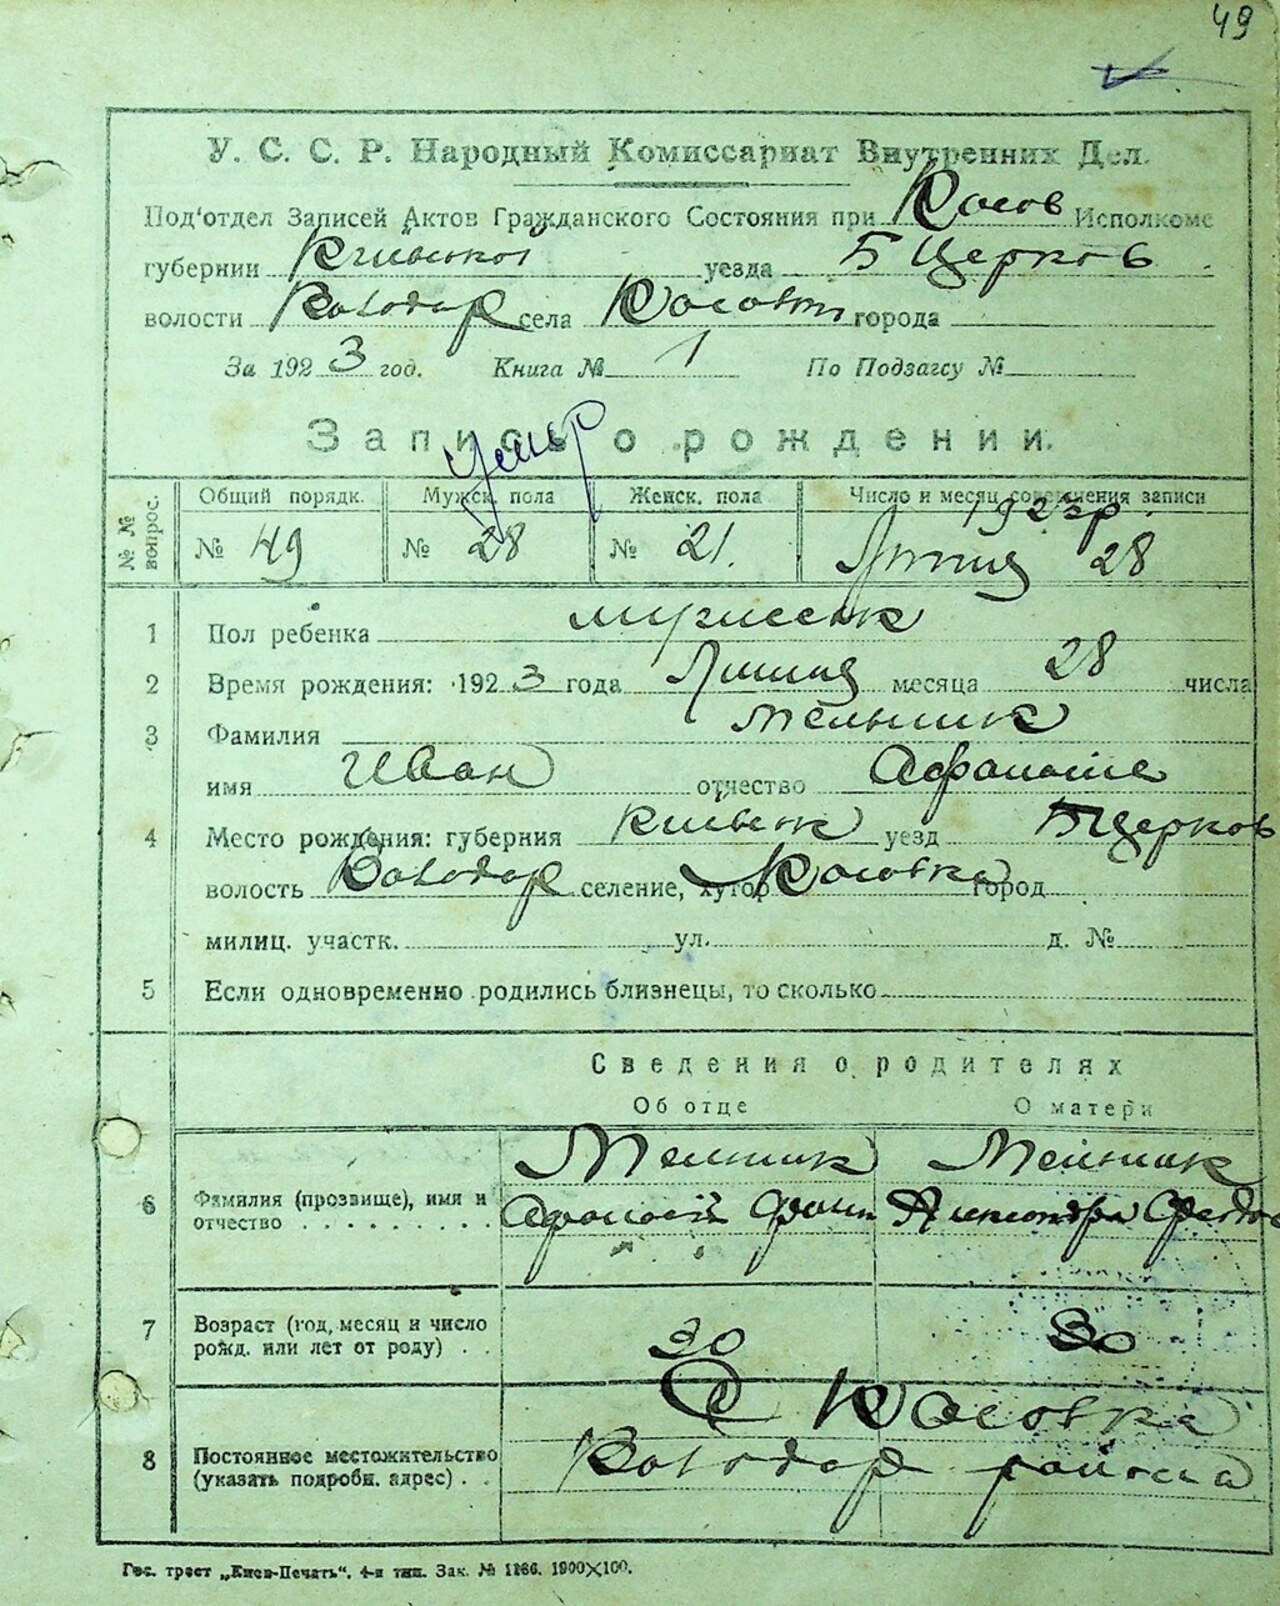 49
У. С. С. Р. Народный Комиссариат Внутренних Дел.
Под'отдел Записей Актов Гражданского Состояния при Косов Исполкоме
губернии Киевской уезда Б Церков
волости Володар села Косовки города
За 1923 год. Книга № 1 По Подзагсу №
Запись о рождении.
Умер
№№ вопрос. Общий порядк. Мужск. пола Женск. пола Число и месяц совершения записи
1923 р.
№ 49 № 28 № 21. Липня 28
1 Пол ребенка мужеск
2 Время рождения: 1923 года Липня месяца 28 числа
3 Фамилия Мельник
имя Иван отчество
4 Место рождения: губерния Киевск уезд БЦерков
волость Володар селение, хутор Косовка город
милиц. участк. ул. д. №
5 Если одновременно родились близнецы, то сколько
Сведения о родителях
Об отце О матери
Мельник Мельник
6 Фамилия (прозвище), имя и отчество Афанасий Александра
7 Возраст (год, месяц и число рожд. или лет от роду) 30 30
С Косовка
8 Постоянное местожительство (указать подробн. адрес) Володар района
Гос. трест „Киев-Печать“. 4-я тип. Зак. № 1266. 1900X100.